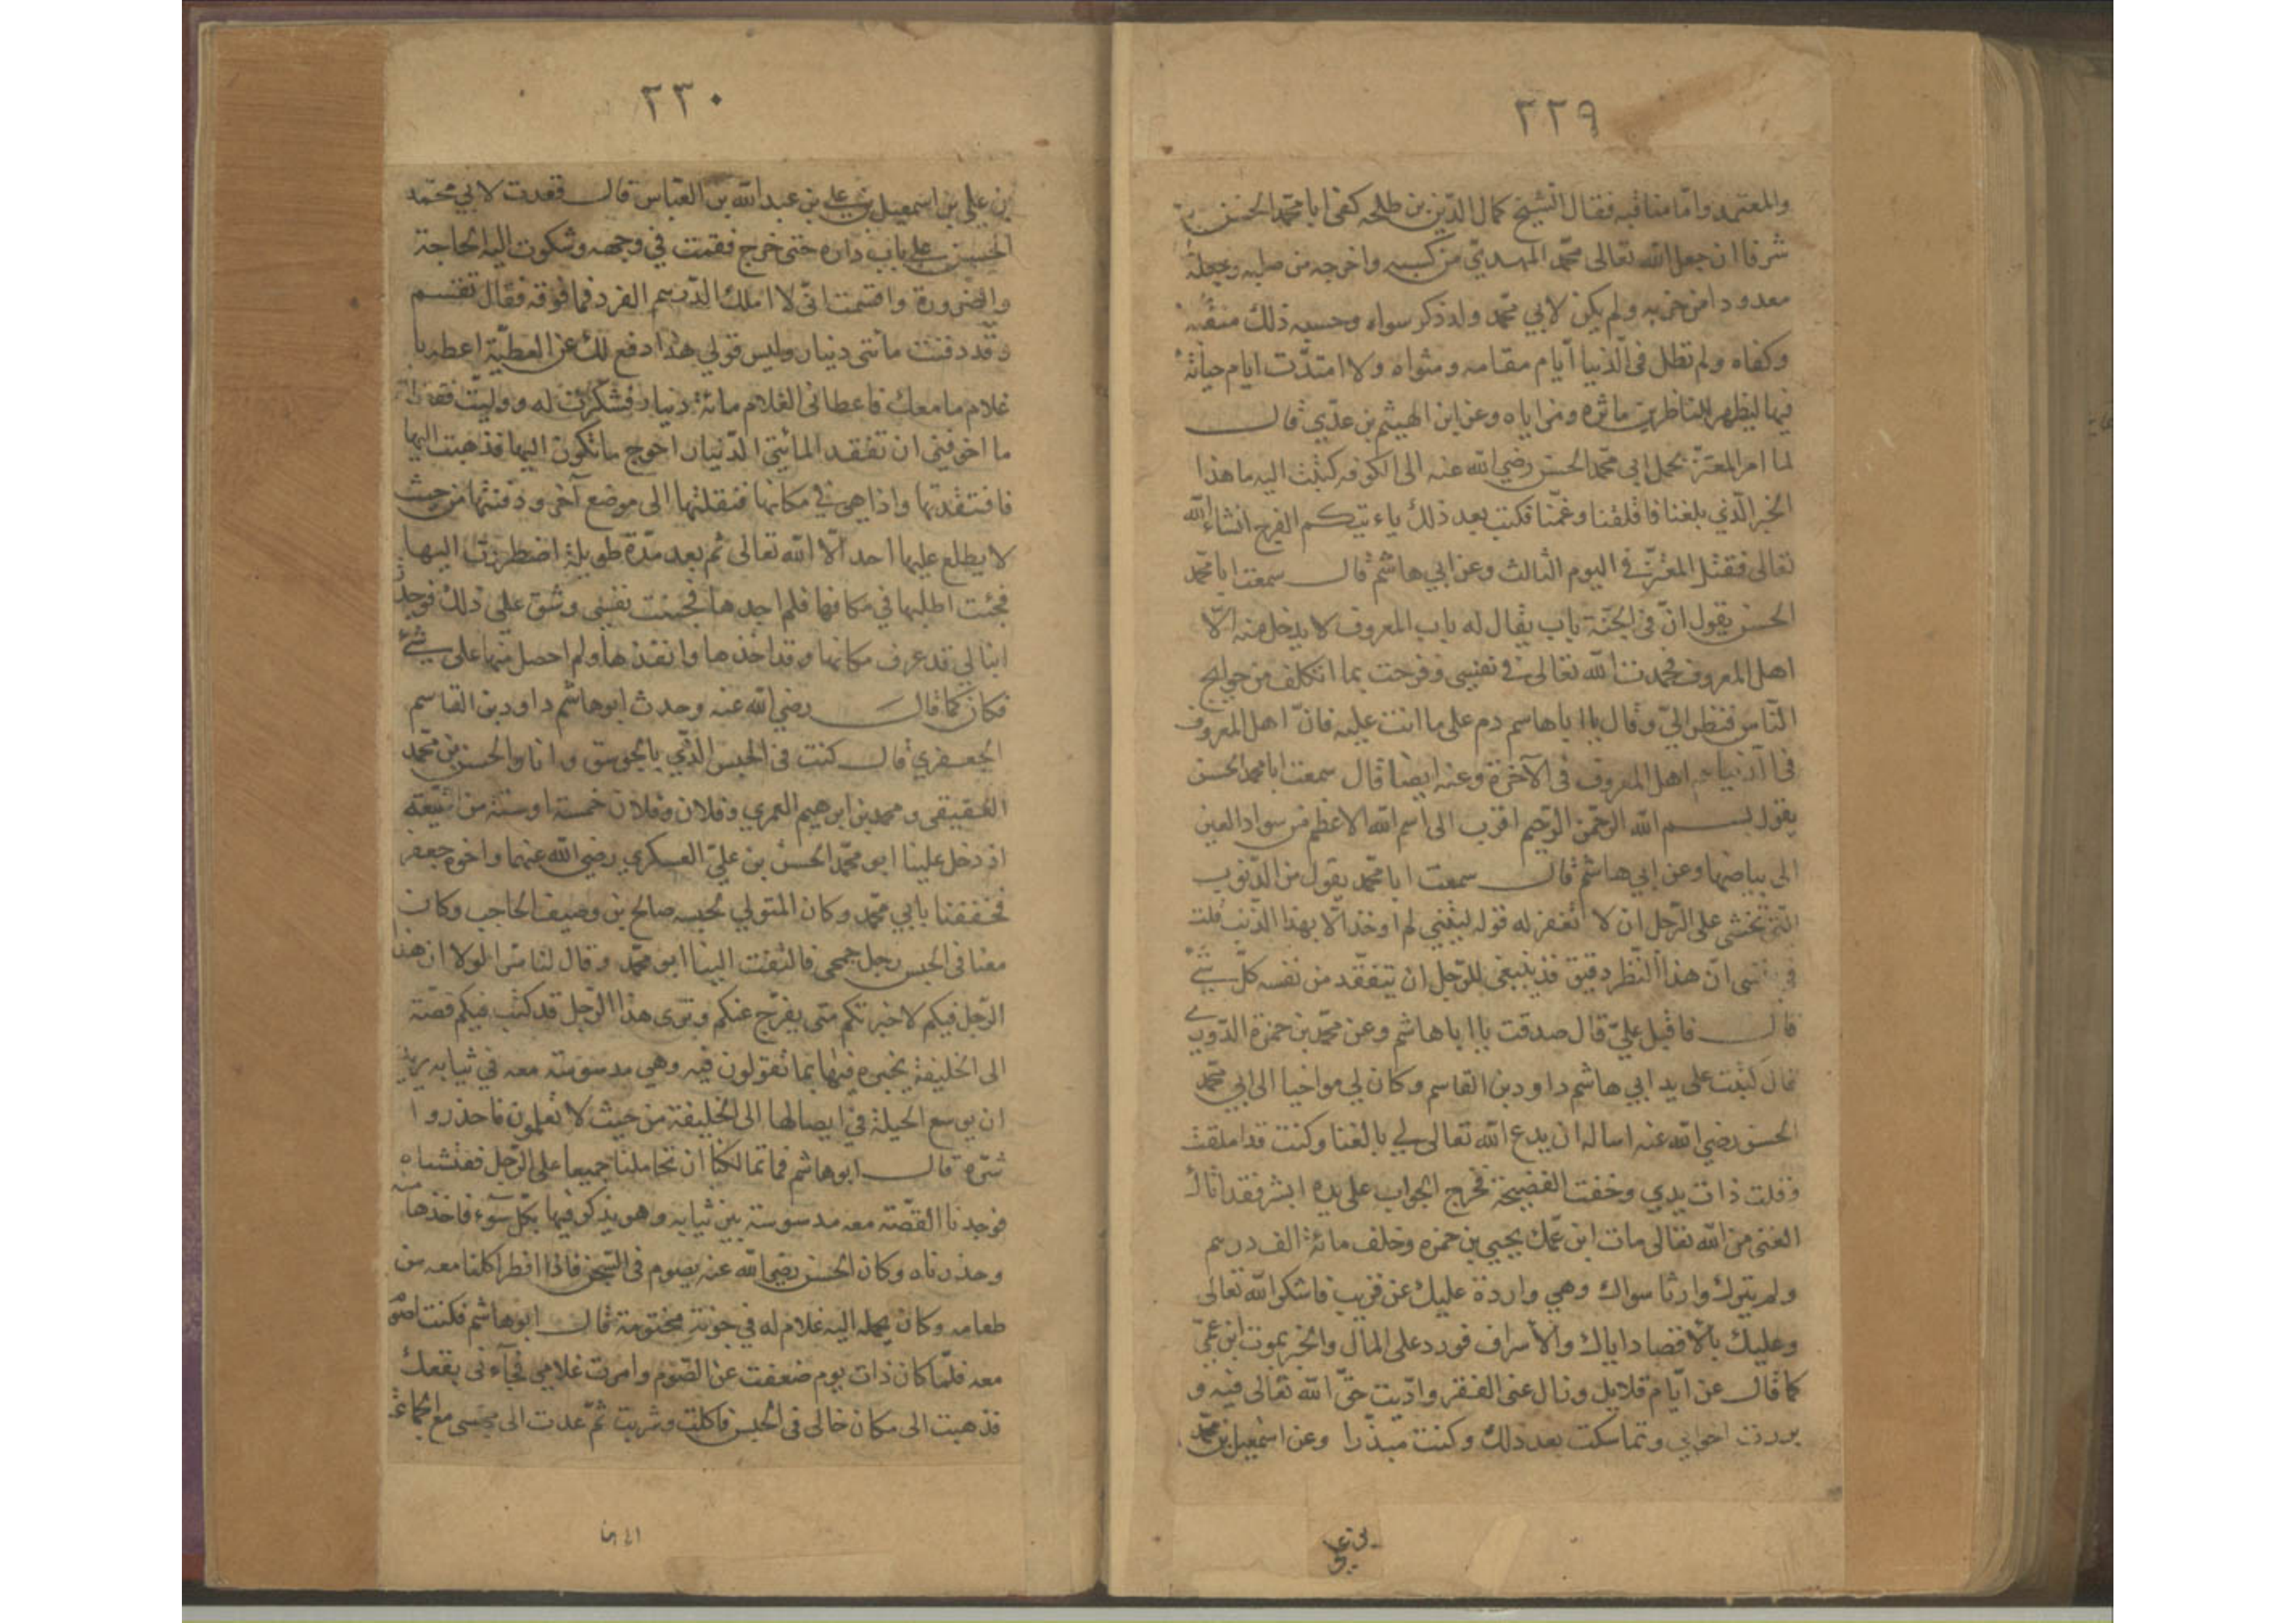 ٢٢٩
والمعتمد واما مناقبه فقال الشيخ كمال الدين بن طلحه كفى ابا محمد الحسن
شرفا ان جعل الله تعالى محمد المهدي من كسبه واخرجه من صلبه وجعله
معدودا من حزبه ولم يكن لابي محمد ولد ذكر سواه وحسبه ذلك منقبه
وكفاه ولم تطل في الدنيا ايام مقامه ومثواه ولا امتدت ايام حياته
فيها ليظهر للناظرين ماثره ومزاياه وعن ابن الهيثم بن عدي قال
لما امر المعتز بحمل ابي محمد الحسن رضي الله عنه الى الكوفه كتبت اليه ما هذا
الخبر الذي بلغنا فاقلقنا وغمنا فكتب بعد ذلك ياءتيكم الفرج انشاء الله
تعالى فقتل المعتز في اليوم الثالث وعن ابي هاشم قال سمعت ابا محمد
الحسن يقول ان في الجنة باب يقال له باب المعروف لا يدخل منه الا
اهل المعروف فحمدت الله تعالى في نفسي وفرحت بما اتكلف من حوايج
الناس فنظر الي وقال يا ابا هاسم دم على ما انت عليه فان اهل المعروف
في الدنيا اهل المعروف في الآخرة وعنه ايضا قال سمعت ابا محمد الحسن
يقول بسم الله الرحمن الرحيم اقرب الى اسم الله الاعظم من سواد العين
الى بياضها وعن ابي هاشم قال سمعت ابا محمد يقول من الذنوب
التي تخشى على الرجل ان لا تغفر له قوله ليتني لم اوخذ الا بهذا الذنب قلت
في نفسى ان هذا النظر دقيق قد ينبغي للرجل ان يتفقد من نفسه كل شئ
قال فاقبل علي قال صدقت يا ابا هاشم وعن محمد بن حمزة الدوري
قال كتبت على يد ابي هاشم داود بن القاسم وكان لي مواخيا الى ابي محمد
الحسن رضي الله عنه اساله ان يدع الله تعالى لي بالغنا وكنت قد املقت
وقلت ذات يدي وخفت الفضيحة فخرج الجواب على يده ابشر فقد اتاك
الغنى من الله تعالى مات ابن عمك يحيي بن حمزه وخلف مائة الف درهم
ولم يترك وارثا سواك وهي واردة عليك عن قريب فاشكر الله تعالى
وعليك بالاقتصاد اياك والاسراف فورد على المال والخبر بموت ابن عمي
كما قال عن ايام قلايل وزال عني الفقر واديت حق الله تعالى فيه و
بررت اخواني وتماسكت بعد ذلك وكنت مبذرا وعن اسمعيل بن محمد
٢٣٠
بن علي بن اسمعيل بن علي بن عبد الله بن العباس قال قعدت لابي محمد
الحسن على باب داره حتى خرج فقمت في وجهه وشكوت اليه الحاجة
والضرورة واقسمت اني لا املك الدرهم الفرد فما فوقه فقال تقسم
وقد دفنت مائتي دينار وليس قولي هذا دفع لك عن العطية اعطه يا
غلام ما معك فاعطاني الغلام مائة دينار فشكرت له ووليت فقال
ما اخوفني ان تفقد المائتي الدينار احوج ماتكون اليها فذهبت اليها
فافتقدتها واذا هي في مكانها فنقلتها الى موضع آخر ودفنتها من حيث
لا يطلع عليها احد الا الله تعالى ثم بعد مدة طويلة اضطررت اليها
فجئت اطلبها في مكانها فلم اجدها فجئت نفسي وشق علي ذلك فوجدت
ابنا لي قد عرف مكانها وقد اخذها وانفذها ولم احصل منها على شئ
فكان كما قال رضي الله عنه وحدث ابو هاشم داود بن القاسم
الجعفري قال كنت في الحبس الذي بالجوسق وانا والحسن بن محمد
العقيقى ومحمد بن ابرهيم العمري وفلان وفلان خمسة او ستة من الشيعة
اذ دخل علينا ابو محمد الحسن بن علي العسكري رضي الله عنهما واخوه جعفر
فحففنا بابي محمد وكان المتولي لحبسه صالح بن وصيف الحاجب وكان
معنا في الحبس رجل جمحي فالتفت الينا ابو محمد وقال لنا سرا لولا ان هذا
الرجل فيكم لاخبرتكم متى يفرج عنكم وترى هذا الرجل قد كتب فيكم قصته
الى الخليفة يخبره فيها بما تقولون فيه وهي مدسوسة معه في ثيابه يريد
ان يوسع الحيلة في ايصالها الى الخليفة من حيث لا تعلمون فاحذروا
شره قال ابو هاشم فما تمالكنا ان تحاملنا جميعا على الرجل ففتشناه
فوجدنا القصة معه مدسوسة بين ثيابه وهو يذكر فيها بكل سوء فاخذها منه
وحذرناه وكان الحسن رضي الله عنه يصوم في السجن فاذا افطر اكلنا معه من
طعامه وكان يحمله اليه غلام له في جونة مختومة قال ابو هاشم فكنت اصوم
معه فلما كان ذات يوم ضعفت عن الصوم وامرت غلامي فجاءني بقعك
فذهبت الى مكان خالي في الحبس فاكلت وشربت ثم عدت الى مجلسى مع الجماعة